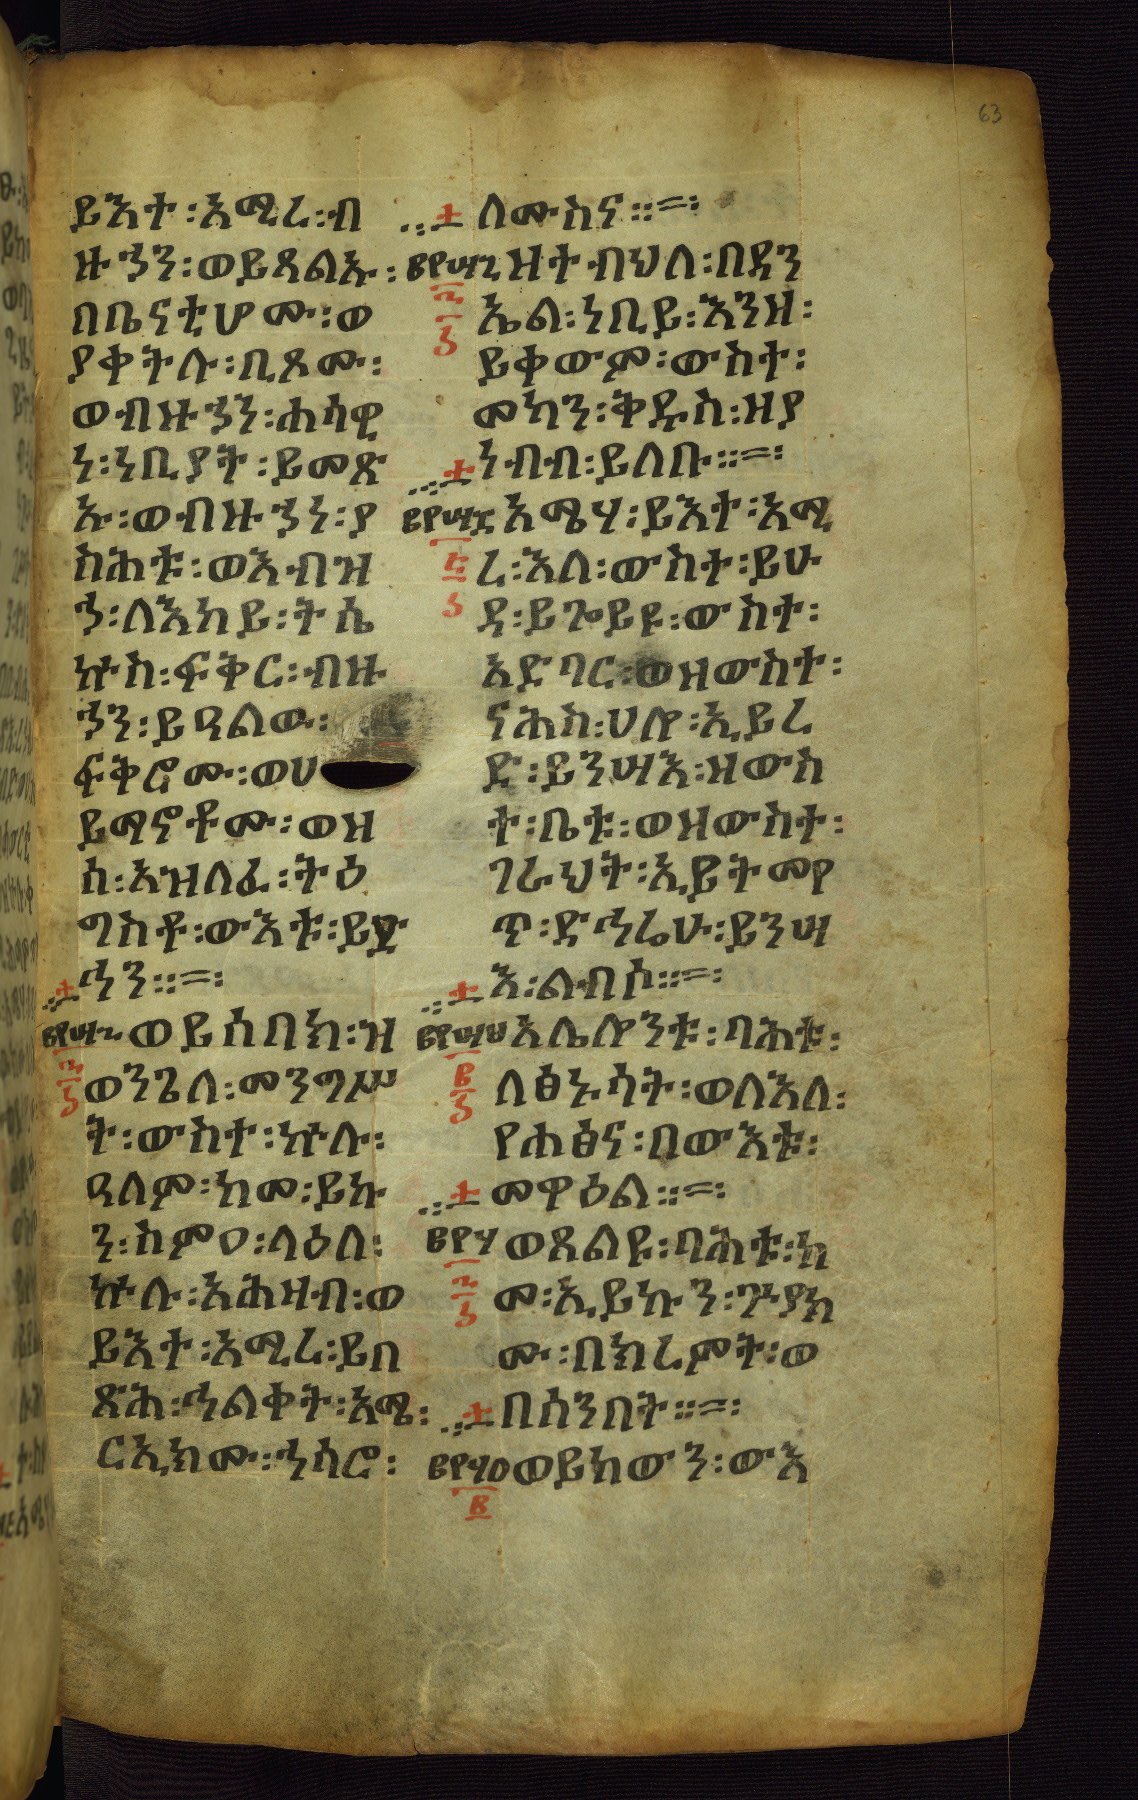 ይእተ፡አሚረ፡ብ
ዙኃን፡ወይጻልኡ፡
በቤናቲሆሙ፡ወ
ያቀትሉ፡ቢጾሙ፡
ወብዙኃን፡ሐሳዊ
ነ፡ነቢያት፡ይመጽ
ኡ፡ወብዙኃነ፡ያ
ስሕቱ፡ወእብዝ
ኃ፡ለእከይ፡ትሴ
ኵስ፡ፍቅር፡ብዙ
ኃን፡ይዳልው፡
ፍቅሮሙ፡ወሀ
ይማኖቶሙ፡ወዝ
ሰ፡አዝለፈ፡ትዕ
ግስቶ፡ውእቱ፡ይድ
ኅን።
ወይሰበክ፡ዝ
ወንጌለ፡መንግሥ
ት፡ውስተ፡ኵሉ፡
ዓለም፡ከመ፡ይኩ
ን፡ስምዐ፡ላዕለ፡
ኵሉ፡አሕዛብ፡ወ
ይእተ፡አሚረ፡ይበ
ጽሕ፡ኅልቀት፡አሜ፡
ርኢክሙ፡ኀሳሮ፡
ለሙስና።
ዝተ፡ብህለ፡በዳን
ኤል፡ነቢይ፡እንዘ፡
ይቀውም፡ውስተ፡
መካን፡ቅዱስ፡ዘያ
ነብብ፡ይለቡ።
አሜሃ፡ይእተ፡አሚ
ረ፡እለ፡ውስተ፡ይሁ
ዳ፡ይጐይዩ፡ውስተ፡
አድባር፡ወዘውስተ፡
ናሕስ፡ሀሎ፡ኢይረ
ድ፡ይንሣእ፡ዘውስ
ተ፡ቤቱ፡ወዘውስተ፡
ገራህት፡ኢይትመየ
ጥ፡ድኅሬሁ፡ይንሣ
እ፡ልብሶ።
አሌሎንቱ፡ባሕቱ፡
ለፅኑሳት፡ወለእለ፡
የሐፅና፡በውእቱ፡
መዋዕል።
ወጸልዩ፡ባሕቱ፡ከ
መ፡ኢይኩን፡ጕያክ
ሙ፡በክረምት፡ወ
በሰንበት።
ወይከውን፡ውእ
63